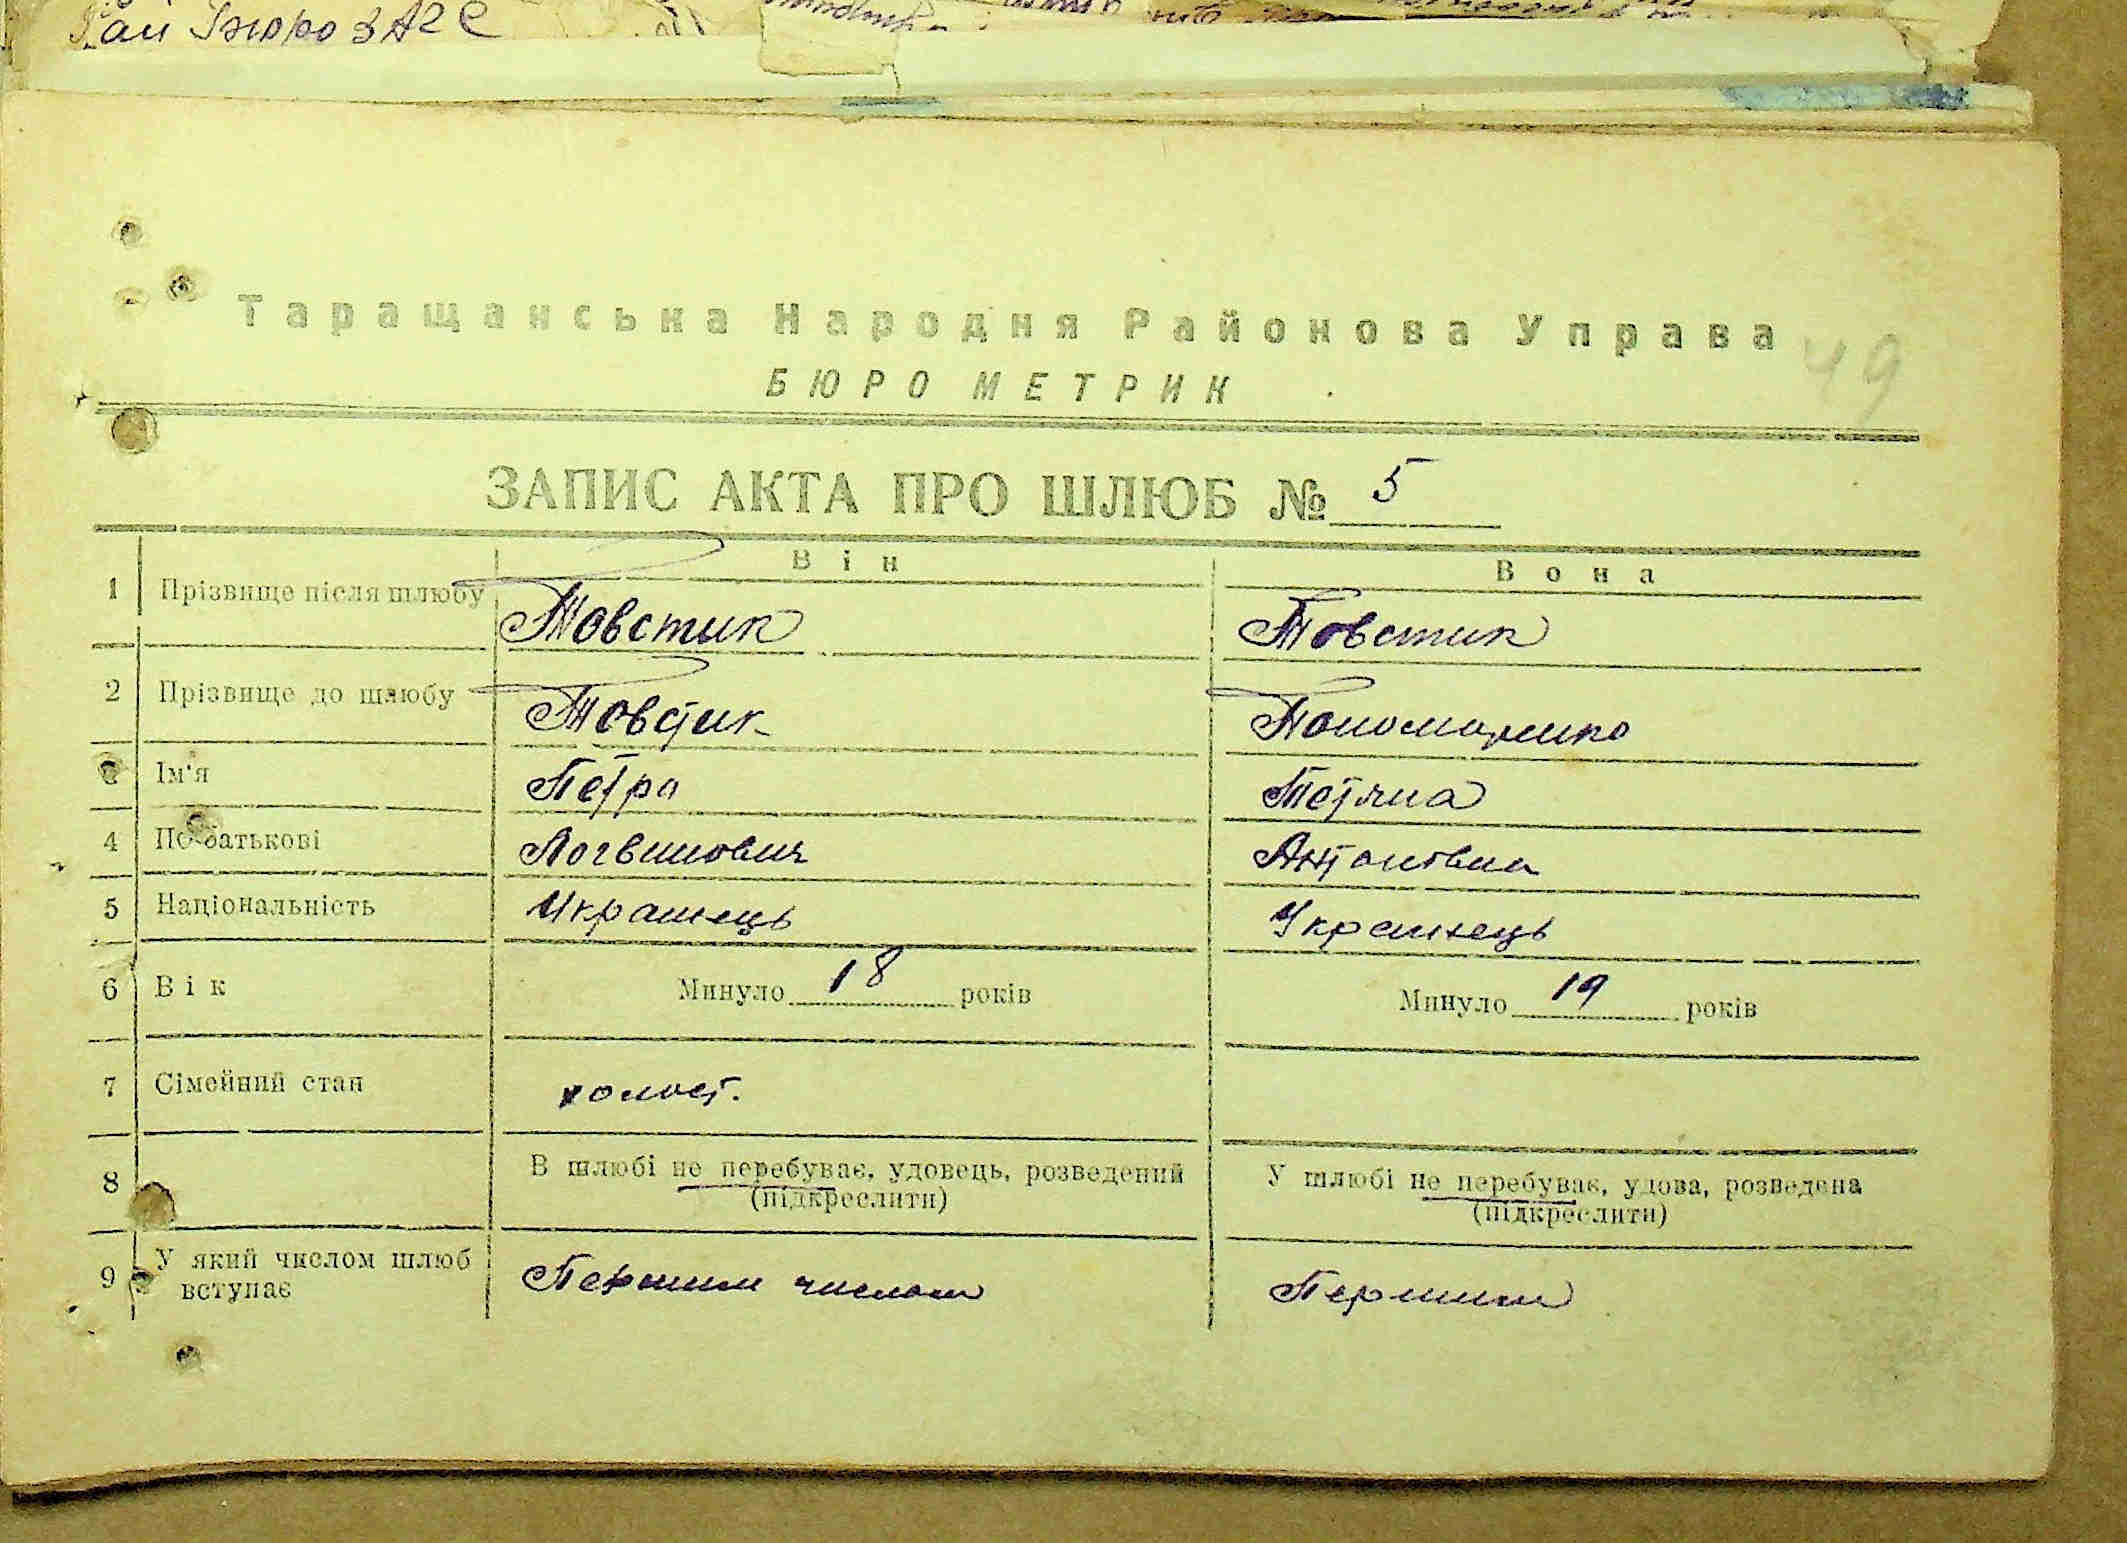 Рай Бюро ЗАГС
Таращанська Народня Районова Управа
49
БЮРО МЕТРИК
ЗАПИС АКТА ПРО ШЛЮБ № 5
Він Вона
1 Прізвище після шлюбу Товстик Товстик
2 Прізвище до шлюбу Товстик Пономаренко
Ім'я Петро Тетяна
4 По батькові Логвинович Антонівна
5 Національність Українець Українець
6 Вік Минуло 18 років Минуло 19 років
7 Сімейний стан холост.
8 В шлюбі не перебуває, удовець, розведений У шлюбі не перебуває, удова, розведена
(підкреслити) (підкреслити)
9 У який числом шлюб вступає Першим числом Першим